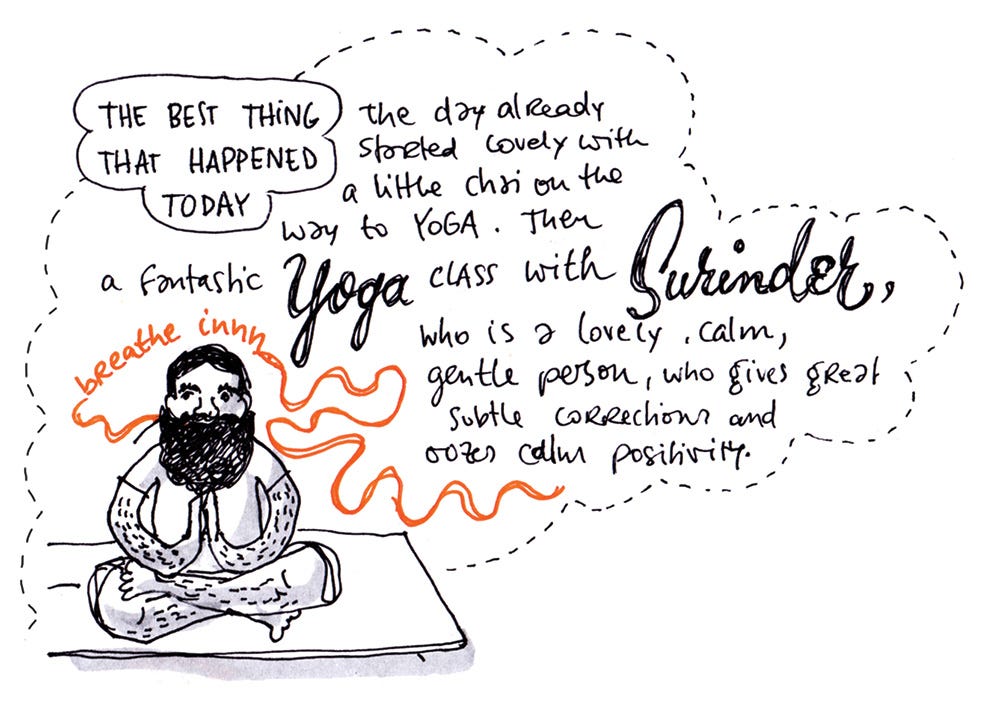 THE BEST THING
THAT HAPPENED
TODAY
the day already
started lovely with
a little chai on the
way to YOGA. Then
a fantastic Yoga class with Surinder,
who is a lovely, calm,
gentle person, who gives great
subtle corrections and
oozes calm positivity.
breathe innn